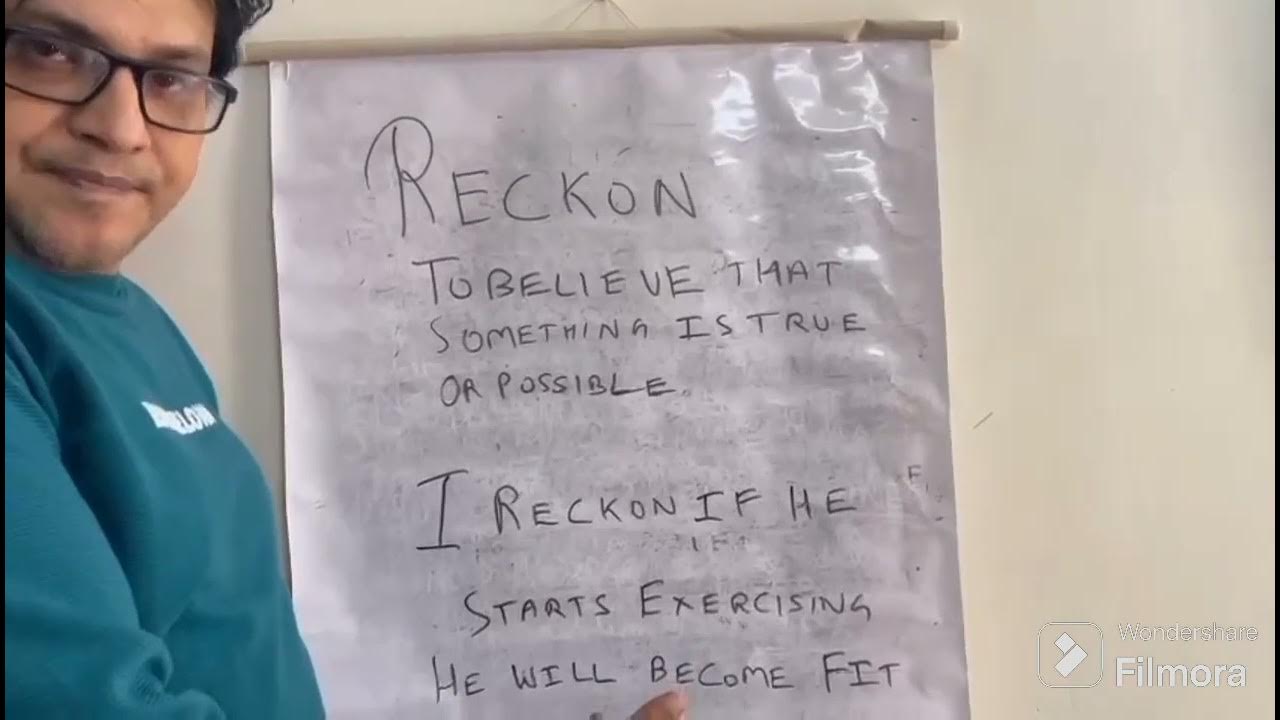 RECKON
TO BELIEVE THAT
SOMETHING IS TRUE
OR POSSIBLE.
I RECKON IF HE
STARTS EXERCISING
HE WILL BECOME FIT
Wondershare
Filmora